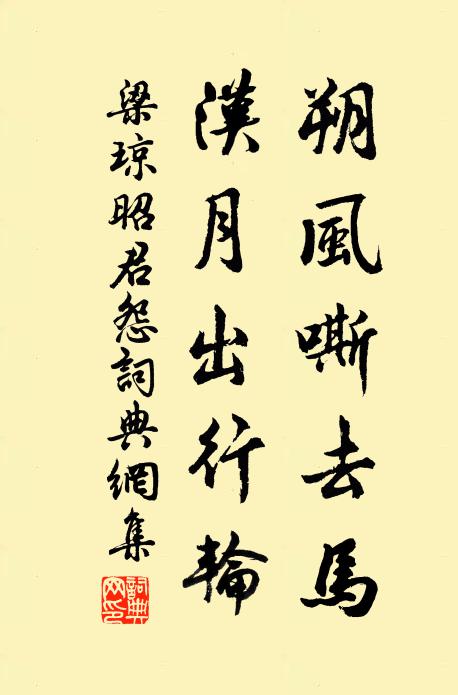 朔風嘶去馬
漢月出行輪
梁琼昭君怨詞典網集
詞典網印